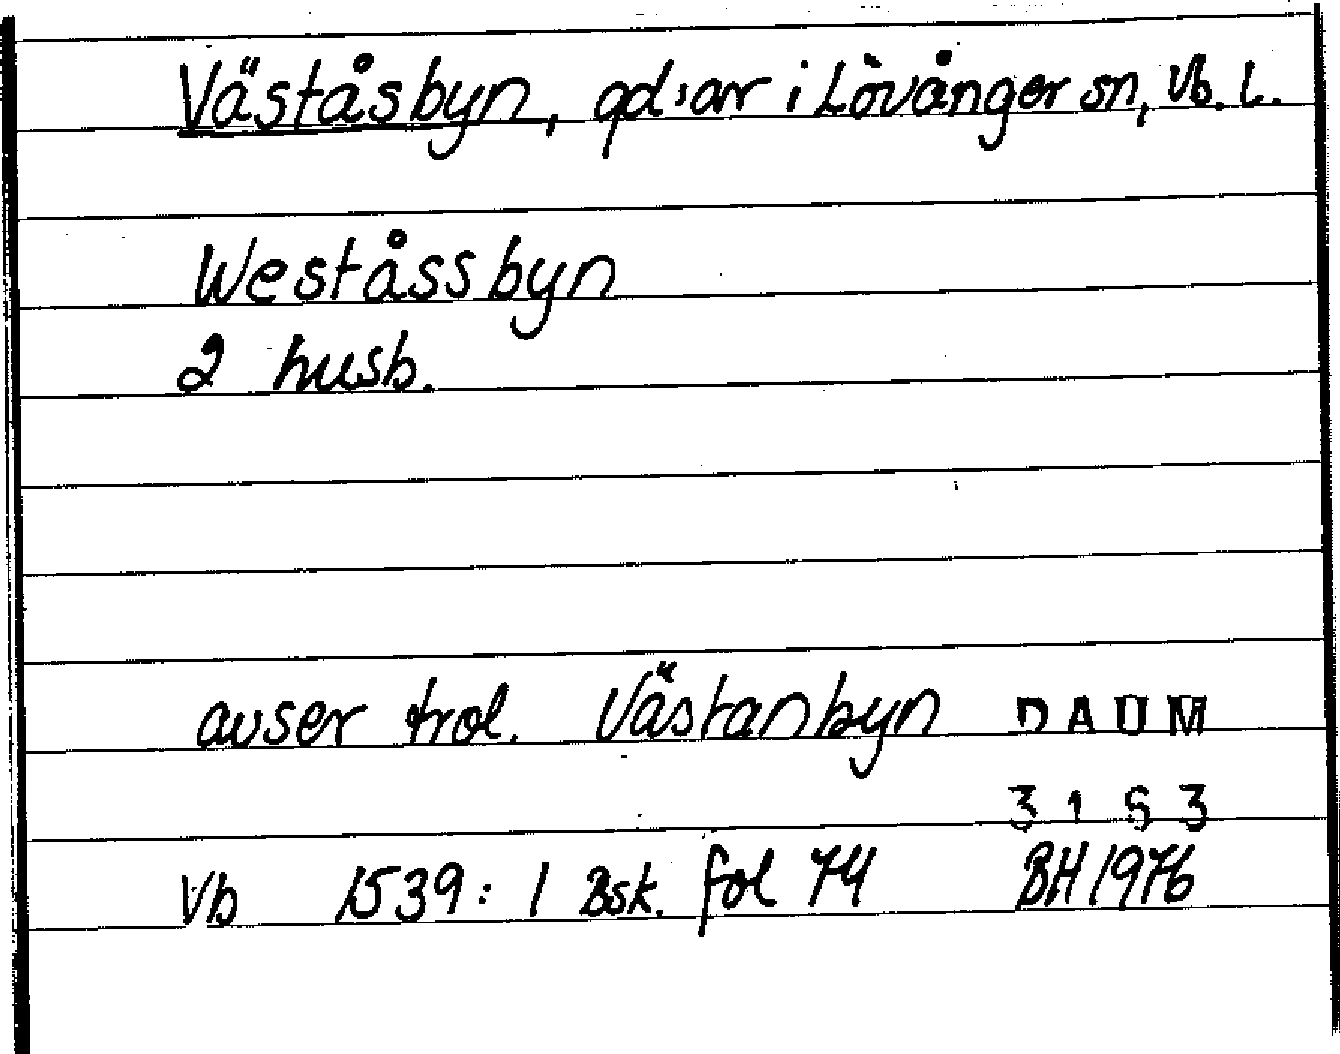 Väståsbyn, gd:ar i Lövånger sn, Vb. l.
Weståssbyn
2 husb.
avser trol. Västanbyn DAUM
3163
Vb 1539:1 Bsk. fol 74 BH 1976